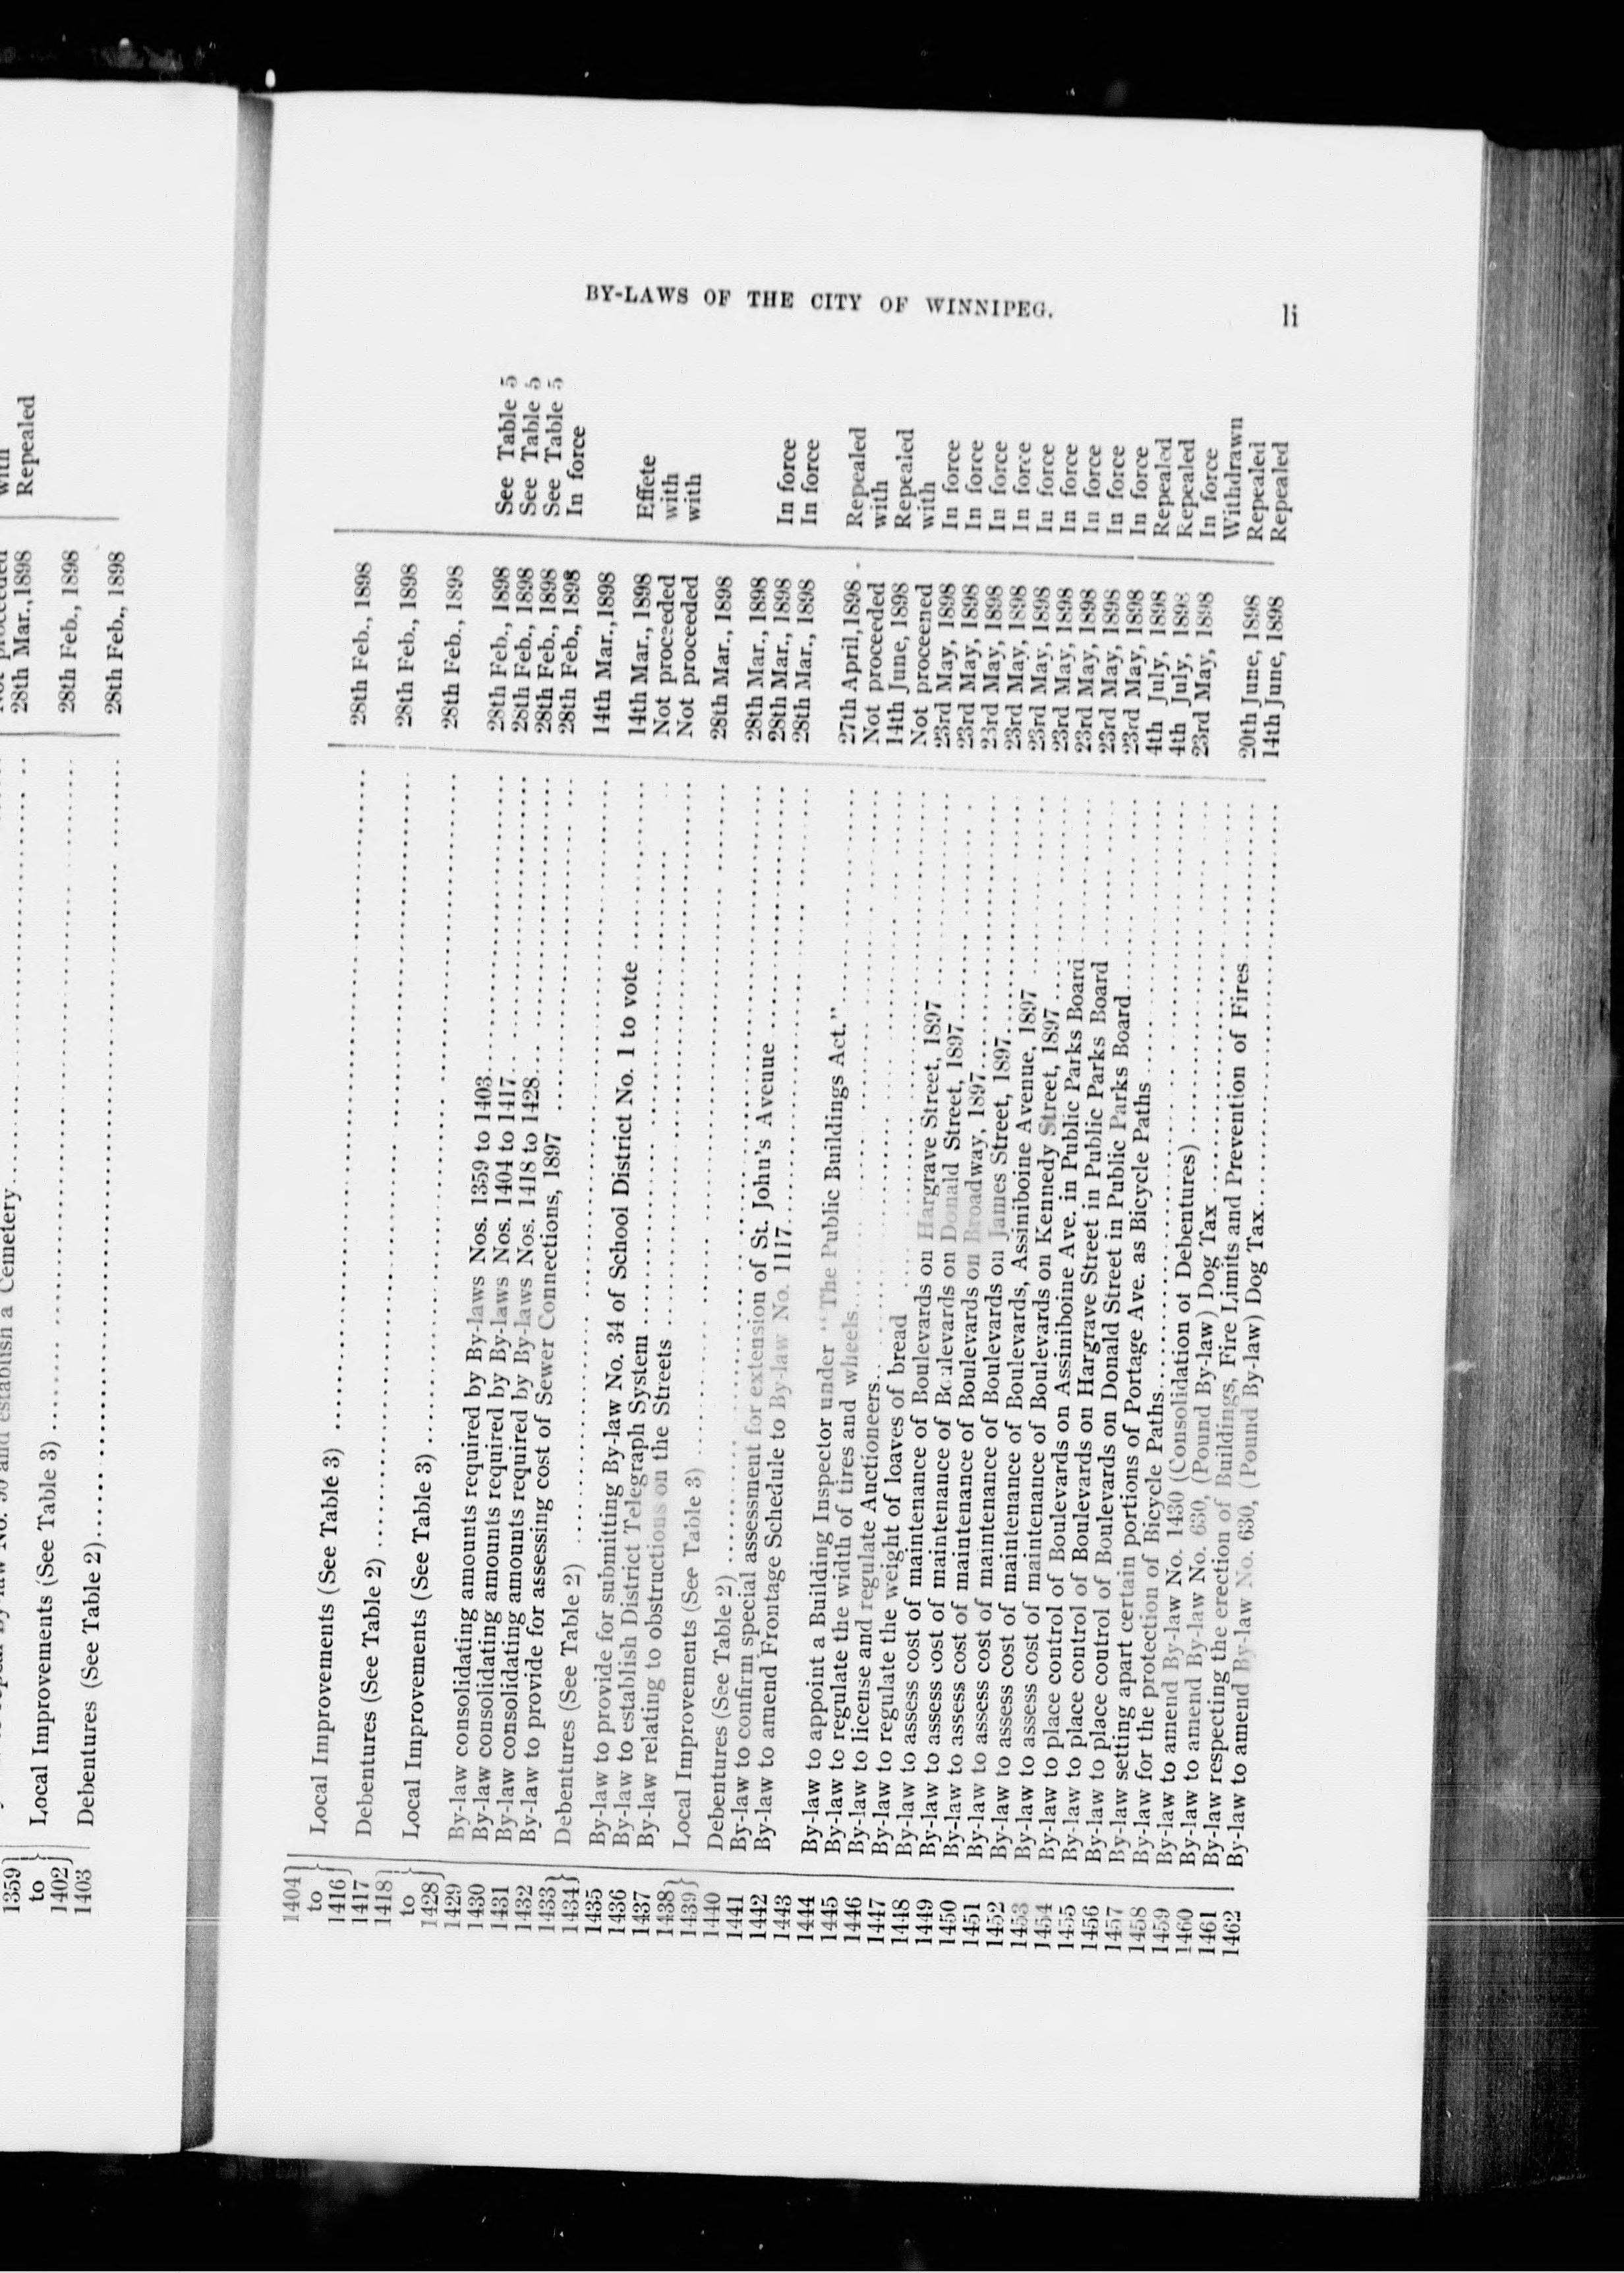 with
Repealed
28th Mar.,1898
establish a Cemetery
1359
to
1402
Local Improvements (See Table 3) 28th Feb., 1898
1403 Debentures (See Table 2) 28th Feb., 1898
BY-LAWS OF THE CITY OF WINNIPEG. li
1404
to
1416
Local Improvements (See Table 3) 28th Feb., 1898
1417 Debentures (See Table 2) 28th Feb., 1898
1418
to
1428
Local Improvements (See Table 3) 28th Feb., 1898
1429 By-law consolidating amounts required by By-laws Nos. 1359 to 1403 28th Feb., 1898 See Table 5
1430 By-law consolidating amounts required by By-laws Nos. 1404 to 1417 28th Feb., 1898 See Table 5
1431 By-law consolidating amounts required by By-laws Nos. 1418 to 1428 28th Feb., 1898 See Table 5
1432 By-law to provide for assessing cost of Sewer Connections, 1897 28th Feb., 1898 In force
1433
1434
Debentures (See Table 2) 14th Mar.,1898
1435 By-law to provide for submitting By-law No. 34 of School District No. 1 to vote 14th Mar., 1898 Effete
1436 By-law to establish District Telegraph System Not proceeded with
1437 By-law relating to obstructions on the Streets Not proceeded with
1438
1439
Local Improvements (See Table 3) 28th Mar., 1898
1440 Debentures (See Table 2) 28th Mar., 1898
1441 By-law to confirm special assessment for extension of St. John's Avenue 28th Mar., 1898 In force
1442 By-law to amend Frontage Schedule to By-law No. 1117 28th Mar., 1898 In force
1443
1444 By-law to appoint a Building Inspector under "The Public Buildings Act." 27th April,1898 Repealed
1445 By-law to regulate the width of tires and wheels Not proceeded with
1446 By-law to license and regulate Auctioneers 14th June, 1898 Repealed
1447 By-law to regulate the weight of loaves of bread Not proceened with
1448 By-law to assess cost of maintenance of Boulevards on Hargrave Street, 1897 23rd May, 1898 In force
1449 By-law to assess cost of maintenance of Boulevards on Donald Street, 1897 23rd May, 1898 In force
1450 By-law to assess cost of maintenance of Boulevards on Broadway, 1897 23rd May, 1898 In force
1451 By-law to assess cost of maintenance of Boulevards on James Street, 1897 23rd May, 1898 In force
1452 By-law to assess cost of maintenance of Boulevards, Assiniboine Avenue, 1897 23rd May, 1898 In force
1453 By-law to assess cost of maintenance of Boulevards on Kennedy Street, 1897 23rd May, 1898 In force
1454 By-law to place control of Boulevards on Assiniboine Ave. in Public Parks Board 23rd May, 1898 In force
1455 By-law to place control of Boulevards on Hargrave Street in Public Parks Board 23rd May, 1898 In force
1456 By-law to place control of Boulevards on Donald Street in Public Parks Board 23rd May, 1898 In force
1457 By-law setting apart certain portions of Portage Ave. as Bicycle Paths 4th July, 1898 Repealed
1458 By-law for the protection of Bicycle Paths 4th July, 1898 Repealed
1459 By-law to amend By-law No. 1430 (Consolidation of Debentures) 23rd May, 1898 In force
1460 By-law to amend By-law No. 630, (Pound By-law) Dog Tax Withdrawn
1461 By-law respecting the erection of Buildings, Fire Limits and Prevention of Fires 20th June, 1898 Repealed
1462 By-law to amend By-law No. 630, (Pound By-law) Dog Tax 14th June, 1898 Repealed